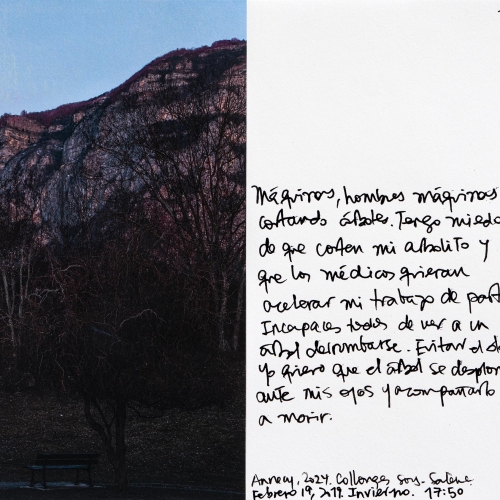 Máquinas, hombres máquinas
cortando árboles. Tengo miedo
de que corten mi arbolito y
que los médicos quieran
acelerar mi trabajo de part
Incapaces todos de ver a un
árbol derrumbarse. Evitar el d
yo quiero que el árbol se desplom
ante mis ojos y acompañarlo
a morir.
Annecy, 2024. Collonges sous-Salève
Febrero 19, 2019. Invierno. 17:50